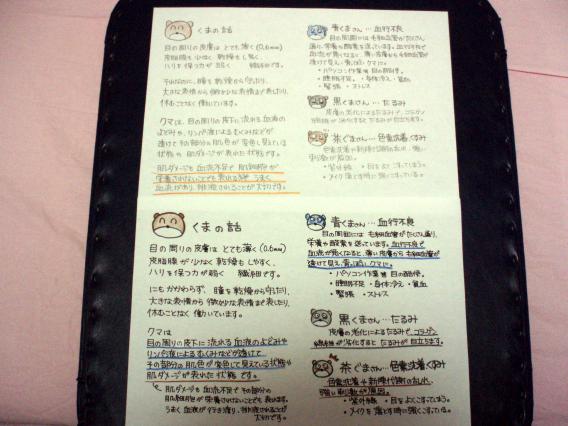 くまの話
目の周りの皮膚は とても薄く(0.6mm)
皮脂腺も少なく 乾燥も し易く
ハリを保つ力が弱く 繊細です。
それなのに、瞳を乾燥から守ったり、
大きな表情から 微かな表情まで表したり、
休むことなく 働いています。
クマは、目の周りの皮下に 流れる 血液の
よどみや、リンパ液によるむくみなどが
透けて その部分の肌色が 変色し見えている
状態や 肌ダメージが 表れた 状態です。
肌ダメージも 血流不足で 肌細胞が
栄養されないことでも 表れる為 うまく
血流があり、排泄されることが 大切です。
青くまさん…血行不良
目の周囲には 毛細血管が たくさん
・パソコン作業等 目の酷使。
・睡眠不足。・身体冷え・貧血
・緊張 ・ストレス
黒くまさん…たるみ
皮膚の劣化によるたるみで、コラゲン
茶ぐまさん…色素沈着くすみ
・紫外線 ・目をよくこすっている。
・メイク落とす時に強くこすっている。
くまの話
目の周りの皮膚は とても薄く(0.6mm)
皮脂腺が少なく 乾燥も しやすく、
ハリを保つ力が弱く 繊細です。
にもかかわらず、瞳を乾燥から守ったり、
大きな表情から 微かな表情まで表したり、
休むことなく 働いています。
クマは
目の周りの皮下に 流れる 血液のよどみや
リンパ液によるむくみなどが透けて
その部分の肌色が 変色して見えている状態や
肌ダメージが 表れた 状態です。
肌ダメージも 血流不足で その部分の
肌細胞が 栄養されないことでも 表れます。
うまく 血液が行き渡り、排泄されることが
大切です。
青くまさん…血行不良
目の周囲には 毛細血管がたくさん通り、
栄養や酸素を送っています。血行不良で
血流が悪くなると、薄い皮膚から 毛細血管が
透けて見え、青っぽいクマに。
・パソコン作業等 目の酷使。
・睡眠不足 ・身体冷え ・貧血
・緊張 ・ストレス
黒くまさん…たるみ
皮膚の劣化によるたるみで、コラゲン
繊維が劣化すると たるみが目立ちます。
茶ぐまさん…色素沈着くすみ
色素沈着や新陳代謝の乱れ、
強い刺激が原因。
・紫外線 ・目をよくこすっている。
・メイクを落とす時に強くこすっている。